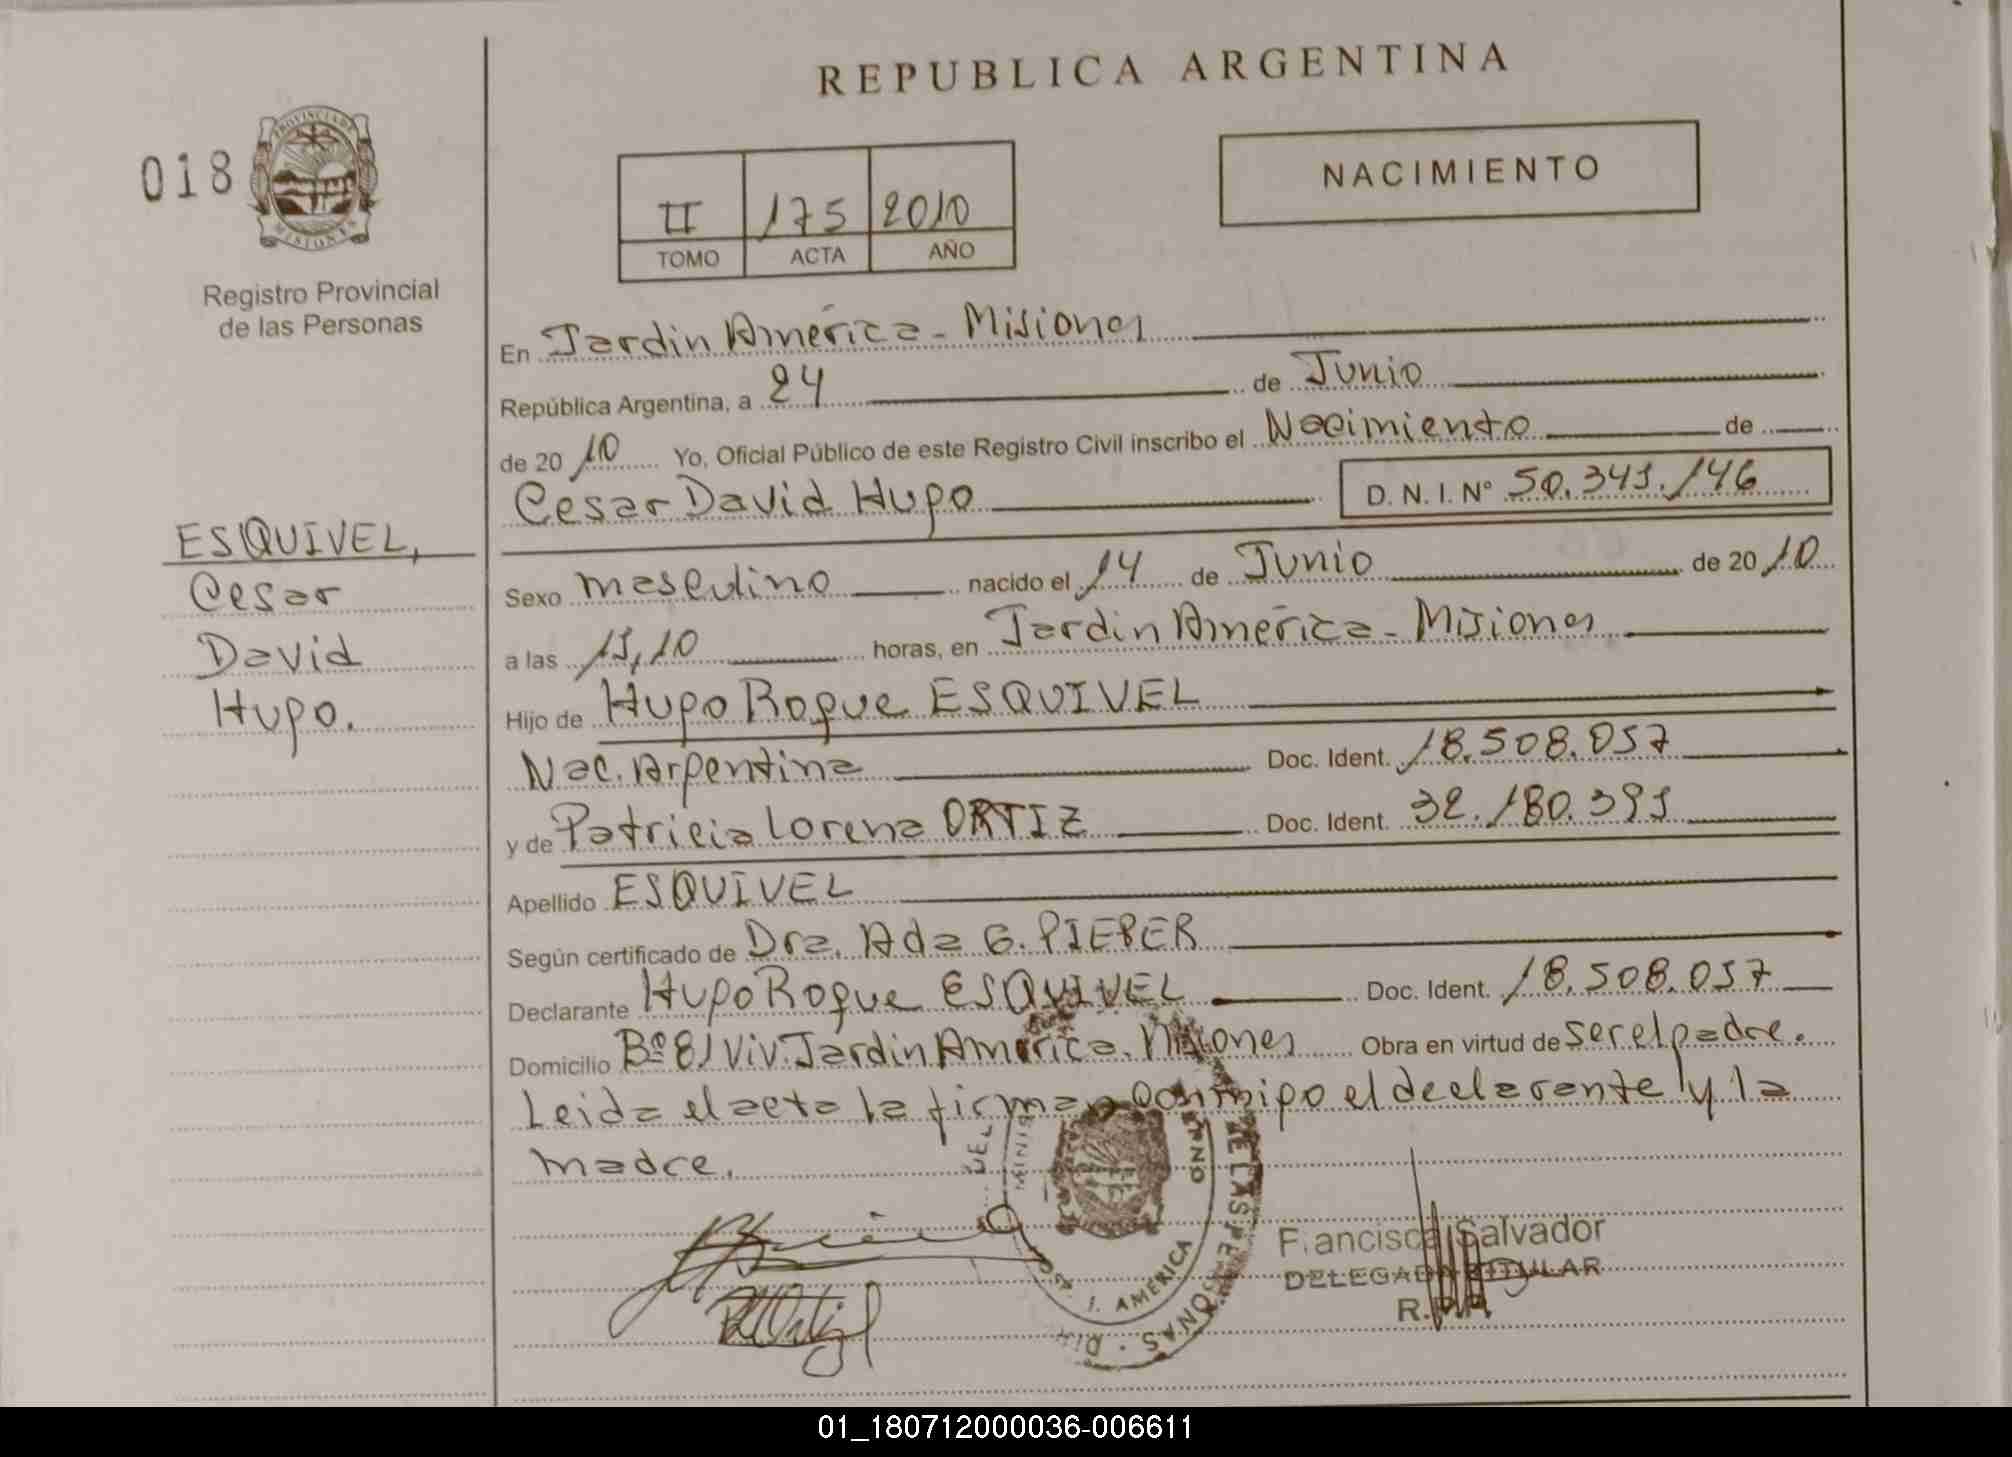 REPUBLICA ARGENTINA
018
PROVINCIA DE
MISIONES
Registro Provincial
de las Personas
NACIMIENTO
II 175 2010
TOMO ACTA AÑO
En Jardin América - Misiones
República Argentina, a 24 de Junio
de 2010 Yo, Oficial Público de este Registro Civil inscribo el Nacimiento de
Cesar David Hugo D. N. I. Nº 50.341.146
ESQUIVEL,
Cesar
David
Hugo.
Sexo masculino nacido el 14 de Junio de 2010
a las 15,10 horas, en Jardin América - Misiones
Hijo de Hugo Roque ESQUIVEL
Nac. Argentina Doc. Ident. 18.508.057
y de Patricia Lorena ORTIZ Doc. Ident. 32.180.391
Apellido ESQUIVEL
Según certificado de Dra. Ada G. PIEPER
Declarante Hugo Roque ESQUIVEL Doc. Ident. 18.508.057
Domicilio Bº 81 Viv. Jardin América. Misiones Obra en virtud de ser el padre.
Leida el acta la firman conmigo el declarante y la
madre.
DE LAS PERSONAS
J. AMERICA
Francisca Salvador
DELEGADA TITULAR
R.P.P.
01_180712000036-006611